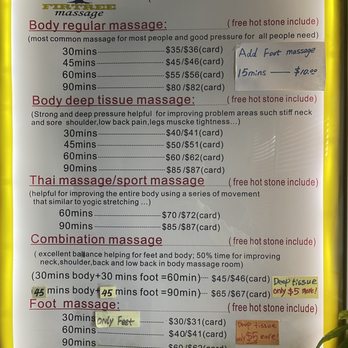 FIRTREE
massage
Body regular massage: (free hot stone include)
(most common massage for most people and good pressure for all people need)
30mins $35/$36(card)
45mins $45/$46(card)
60mins $55/$56(card)
90mins $80/$82(card)
Add Foot massage
15mins — $10.00
Body deep tissue massage: (free hot stone include)
(Strong and deep pressure helpful for improving problem areas such stiff neck
and sore shoulder,low back pain,legs muscke tightness...)
30mins $40/$41(card)
45mins $50/$51(card)
60mins $60/$62(card)
90mins $85/$87(card)
Thai massage/sport massage (free hot stone include)
(helpful for improving the entire body using a series of movement
that similar to yogic stretching ...)
60mins $70/$72(card)
90mins $85/$87(card)
Combination massage (free hot stone include)
( excellent ballance helping for feet and body; 50% time for improving
neck,shoulder,back and low back in body massage room)
(30mins body+30 mins foot =60min) $45/$46(card)
(45 mins body+ 45 mins foot =90min) $65/$67(card)
Deep tissue
only $5 more!
Foot massage: (free hot stone include)
30mins only Feet $30/$31(card)
60mins $40/$41(card)
Deep tissue
only $5 more
90mins